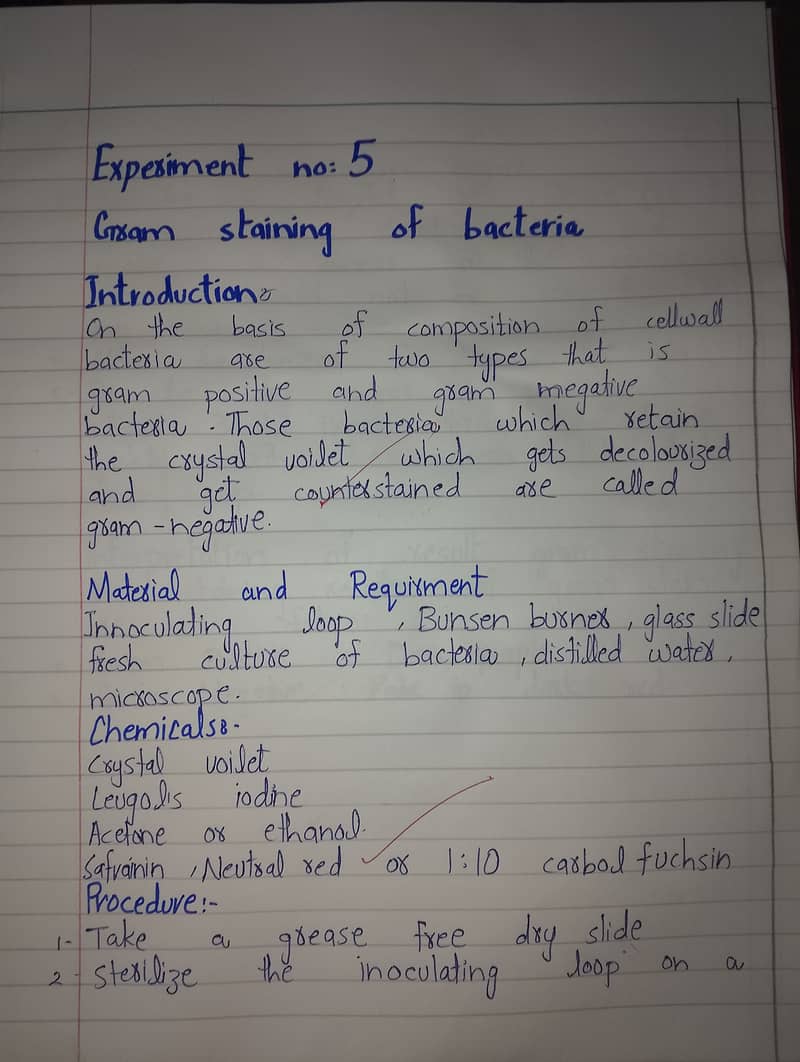 Experiment no: 5
Gram staining of bacteria
Introduction:
On the basis of composition of cellwall
bacteria are of two types that is
gram positive and gram megative
bacteria. Those bacteria which retain
the crystal voilet which gets decolourized
and get counterstained are called
gram-negative.
Material and Requirment
Innoculating loop, Bunsen burner, glass slide
fresh culture of bacteria, distilled water,
microscope.
Chemicals:-
Crystal voilet
Leugolis iodine
Acetone or ethanol.
Safranin, Neutral red or 1:10 carbol fuchsin
Procedure:-
1- Take a grease free dry slide
2- Sterilize the inoculating loop on a